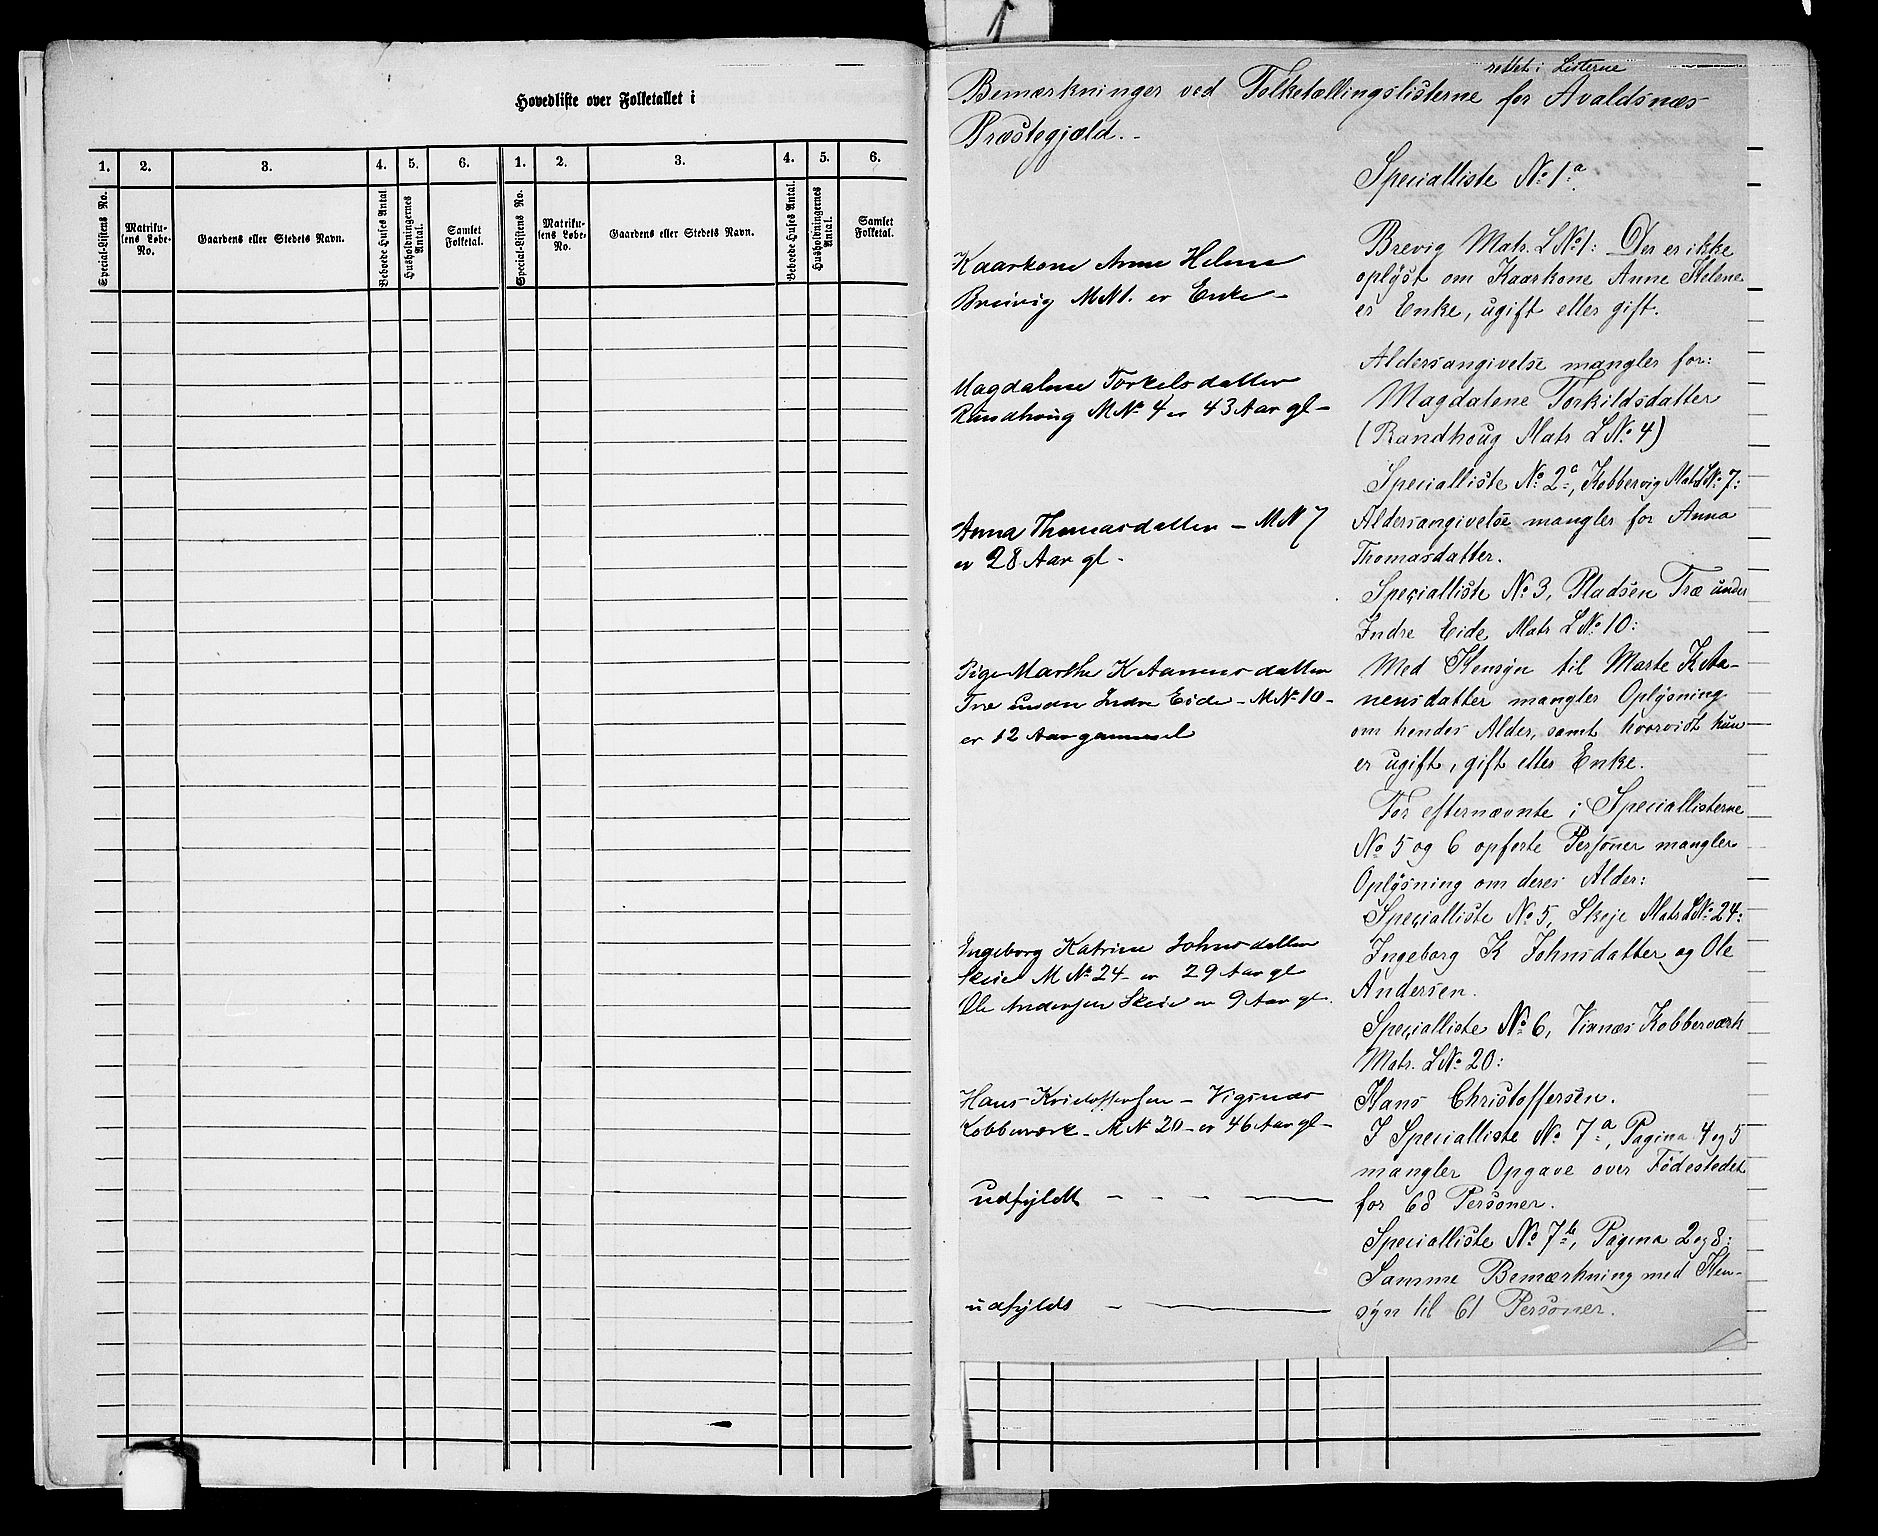 Hovedliste over Folketallet i
1. 2. 3. 4. 5. 6. 1. 2. 3. 4. 5. 6.
Special-Listens No.
Matriku-
lens Løbe-
No.
Gaardens eller Stedets Navn.
Beboede Huses Antal.
Husholdningernes
Antal.
Samlet
Folketal.
Special-Listens No.
Matriku-
lens Løbe-
No.
Gaardens eller Stedets Navn.
Beboede Huses Antal.
Husholdningernes
Antal.
Samlet
Folketal.
rettet i Listerne
Bemærkninger ved Folketællingslisterne for Avaldsnæs
Præstegjæld.
Kaarkone Anne Helene
Breivig M N 1. er Enke –
Magdalene Torkelsdatter
Randhoug M No 4 er 43 Aar gl –
Anna Thomasdatter – M N 7
er 28 Aar gl –
Pige Marthe K Aanensdatter
Træ under Indre Eide – M No 10 –
er 12 Aar gammel
Ingeborg Katrine Johnsdatter
Skeie M No 24 – er 29 Aar gl
Ole Andersen Skeie er 9 Aar gl.
Hans Kristoffersen – Vigsnæs
Kobberværk – M No 20 – er 46 Aar gl –
udfyldt – – – –
udfyldt – –
Specialliste No 1a.
Brevig Mats. L No 1: Der er ikke
oplyst om Kaarkone Anne Helene
er Enke, ugift eller gift.
Aldersangivelse mangler for:
Magdalene Torkildsdatter
(Randhoug Mats L No 4)
Specialliste No 2a, Kobbervig Mats L No 7:
Aldersangivelse mangler for Anna
Thomasdatter.
Specialliste No 3, Pladsen Træ under
Indre Eide Mats L No 10:
Med Hensyn til Marte K Aa-
nensdatter mangler Oplysning
om hendes Alder, samt hvorvidt hun
er ugift, gift eller Enke.
For efternævnte i Speciallisterne
No 5 og 6 opførte Personer mangler
Oplysning om deres Alder:
Specialliste No 5, Skeje Mats L No 24:
Ingeborg K Johnsdatter og Ole
Andersen.
Specialliste No 6, Visnæs Kobberværk
Mats. L No 20:
Hans Christoffersen.
I Specialliste No 7a, Pagina 4 og 5
mangler Opgave over Fødestedet
for 68 Personer.
Specialliste No 7b, Pagina 2 og 8:
Samme Bemærkning med Hen-
syn til 61 Personer.